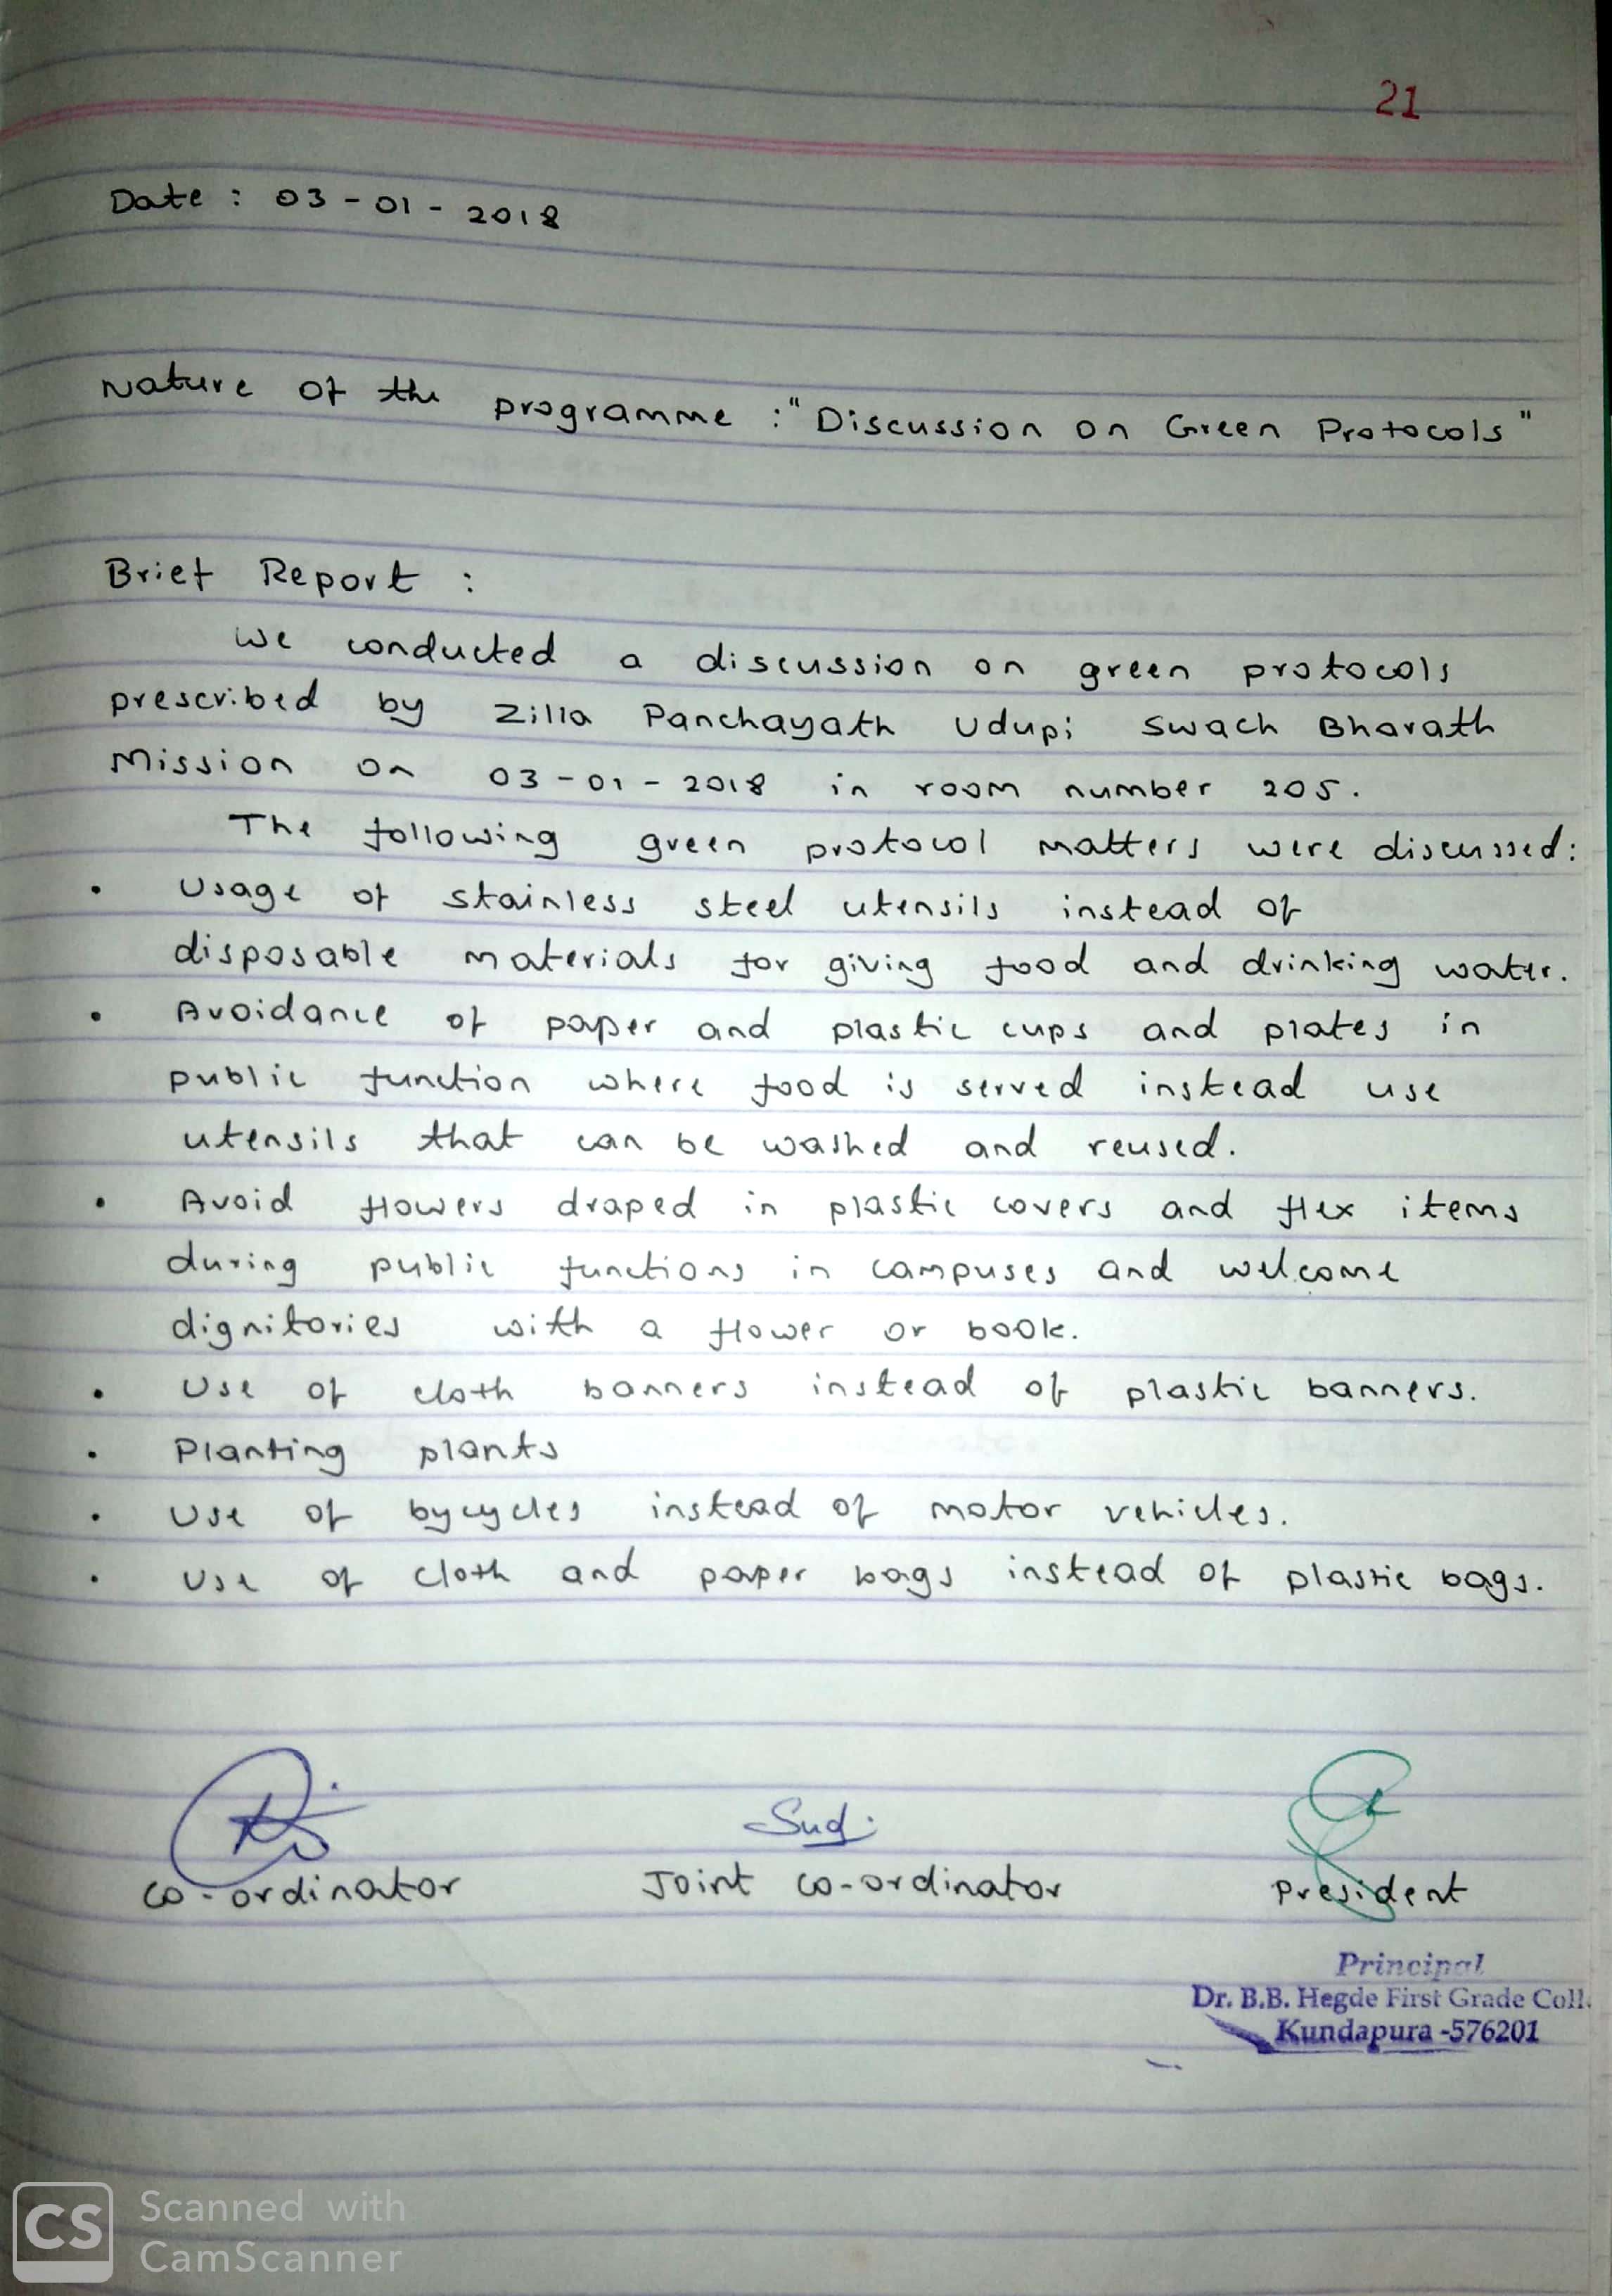 21
Date : 03-01-2018
Nature of the programme : "Discussion on Green Protocols"
Brief Report :
We conducted a discussion on green protocols
prescribed by Zilla Panchayath Udupi Swach Bharath
Mission on 03-01-2018 in room number 205.
The following green protocol matters were discussed:
• Usage of stainless steel utensils instead of
disposable materials for giving food and drinking water.
• Avoidance of paper and plastic cups and plates in
public function where food is served instead use
utensils that can be washed and reused.
• Avoid flowers draped in plastic covers and flex items
during public functions in campuses and welcome
dignitories with a flower or book.
• Use of cloth banners instead of plastic banners.
• Planting plants
• Use of bycycles instead of motor vehicles.
• Use of cloth and paper bags instead of plastic bags.
Sud.
Co-ordinator Joint Co-ordinator President
Principal
Dr. B.B. Hegde First Grade Coll
Kundapura -576201
CS Scanned with
CamScanner